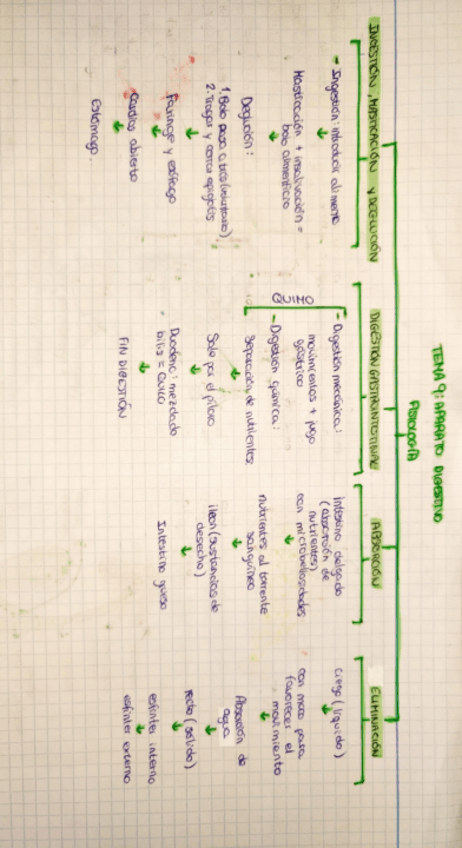 TEMA 9: APARATO DIGESTIVO
FISIOLOGÍA
INGESTIÓN, MASTICACIÓN Y DEGLUCIÓN
- Ingestión: introducir alimento
Masticación + insalivación =
bolo alimenticio
Deglución:
1. Bolo pasa a atrás (voluntario)
2. Tragar y cerrar epiglotis
Faringe y esófago
Cardias abierto
Estómago.
DIGESTIÓN GASTROINTESTINAL
QUIMO
- Digestión mecánica:
movimientos + jugo
gástrico
- Digestión química:
separación de nutrientes
Sale por el píloro
Duodeno: mezclado
bilis = QUILO
FIN DIGESTIÓN
ABSORCIÓN
intestino delgado
(absorción de
nutrientes)
con microvellosidades
nutrientes al torrente
sanguíneo
íleon (sustancias de
desecho)
Intestino grueso
ELIMINACIÓN
ciego (líquido)
con moco para
favorecer el
movimiento
Absorción de
agua
recto (sólido)
esfínter interno
esfínter externo